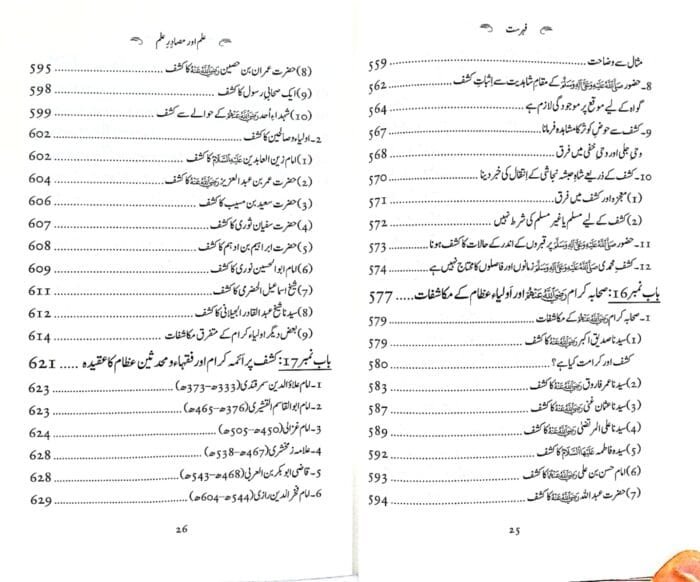 فہرست
مثال سے وضاحت ........ 559
8- حضور ﷺ کے مقامِ شاہدیت سے اِثباتِ کشف ........ 562
گواہ کے لیے موقع پر موجودگی لازم ہے ........ 564
9- کشف سے حوضِ کوثر کا مشاہدہ فرمانا ........ 567
وحی جلی اور وحی خفی میں فرق ........ 568
10- کشف کے ذریعے شاہِ حبشہ نجاشی کے اِنتقال کی خبر دینا ........ 570
(1) معجزہ اور کشف میں فرق ........ 571
(2) کشف کے لیے مسلم یا غیر مسلم کی شرط نہیں ........ 572
11- حضور ﷺ پر قبروں کے اندر کے حالات کا کشف ہونا ........ 573
12- کشفِ محمدی ﷺ زمانوں اور فاصلوں کا محتاج نہیں ہے ........ 574
باب نمبر 16: صحابہ کرام رضی اللہ عنہم اور اَولیاء عظام کے مکاشفات ..... 577
1- صحابہ کرام رضی اللہ عنہم کے مکاشفات ........ 579
(1) سیدنا صدیق اکبر رضی اللہ عنہ کا کشف ........ 579
کشف اور کرامت کیا ہے؟ ........ 580
(2) سیدنا عمر فاروق رضی اللہ عنہ کا کشف ........ 583
(3) سیدنا عثمان غنی رضی اللہ عنہ کا کشف ........ 587
(4) سیدنا علی المرتضیٰ رضی اللہ عنہ کا کشف ........ 589
(5) سیدہ فاطمہ علیہا السلام کا کشف ........ 592
(6) امام حسن بن علی رضی اللہ عنہما کا کشف ........ 593
(7) حضرت عبد اللہ رضی اللہ عنہ کا کشف ........ 594
25
علم اور مصادرِ علم
(8) حضرت عمران بن حصین رضی اللہ عنہ کا کشف ........ 595
(9) ایک صحابیِ رسول کا کشف ........ 598
(10) شہداءِ اُحد رضی اللہ عنہم کے حوالے سے کشف ........ 599
2- اولیاء و صالحین کا کشف ........ 602
(1) امام زین العابدین علیہ السلام کا کشف ........ 602
(2) حضرت عمر بن عبد العزیز رضی اللہ عنہ کا کشف ........ 604
(3) حضرت سعید بن مسیب کا کشف ........ 606
(4) حضرت سفیان ثوری کا کشف ........ 607
(5) حضرت ابراہیم بن ادہم کا کشف ........ 608
(6) امام ابو الحسین نوری کا کشف ........ 609
(7) شیخ اسماعیل الحضرمی کا کشف ........ 611
(8) سیدنا شیخ عبد القادر الجیلانی کا کشف ........ 612
(9) بعض دیگر اولیاء کرام کے متفرق مکاشفات ........ 614
باب نمبر 17: کشف پر ائمہ کرام اور فقہاء و محدثین عظام کا عقیدہ ..... 621
1- امام علاؤ الدین سمرقندی (333ھ-373ھ) ........ 623
2- امام ابو القاسم القشیری (376ھ-465ھ) ........ 623
3- امام غزالی (450ھ-505ھ) ........ 624
4- علامہ زمخشری (467ھ-538ھ) ........ 628
5- قاضی ابو بکر بن العربی (468ھ-543ھ) ........ 628
6- امام فخر الدین رازی (544ھ-604ھ) ........ 629
26